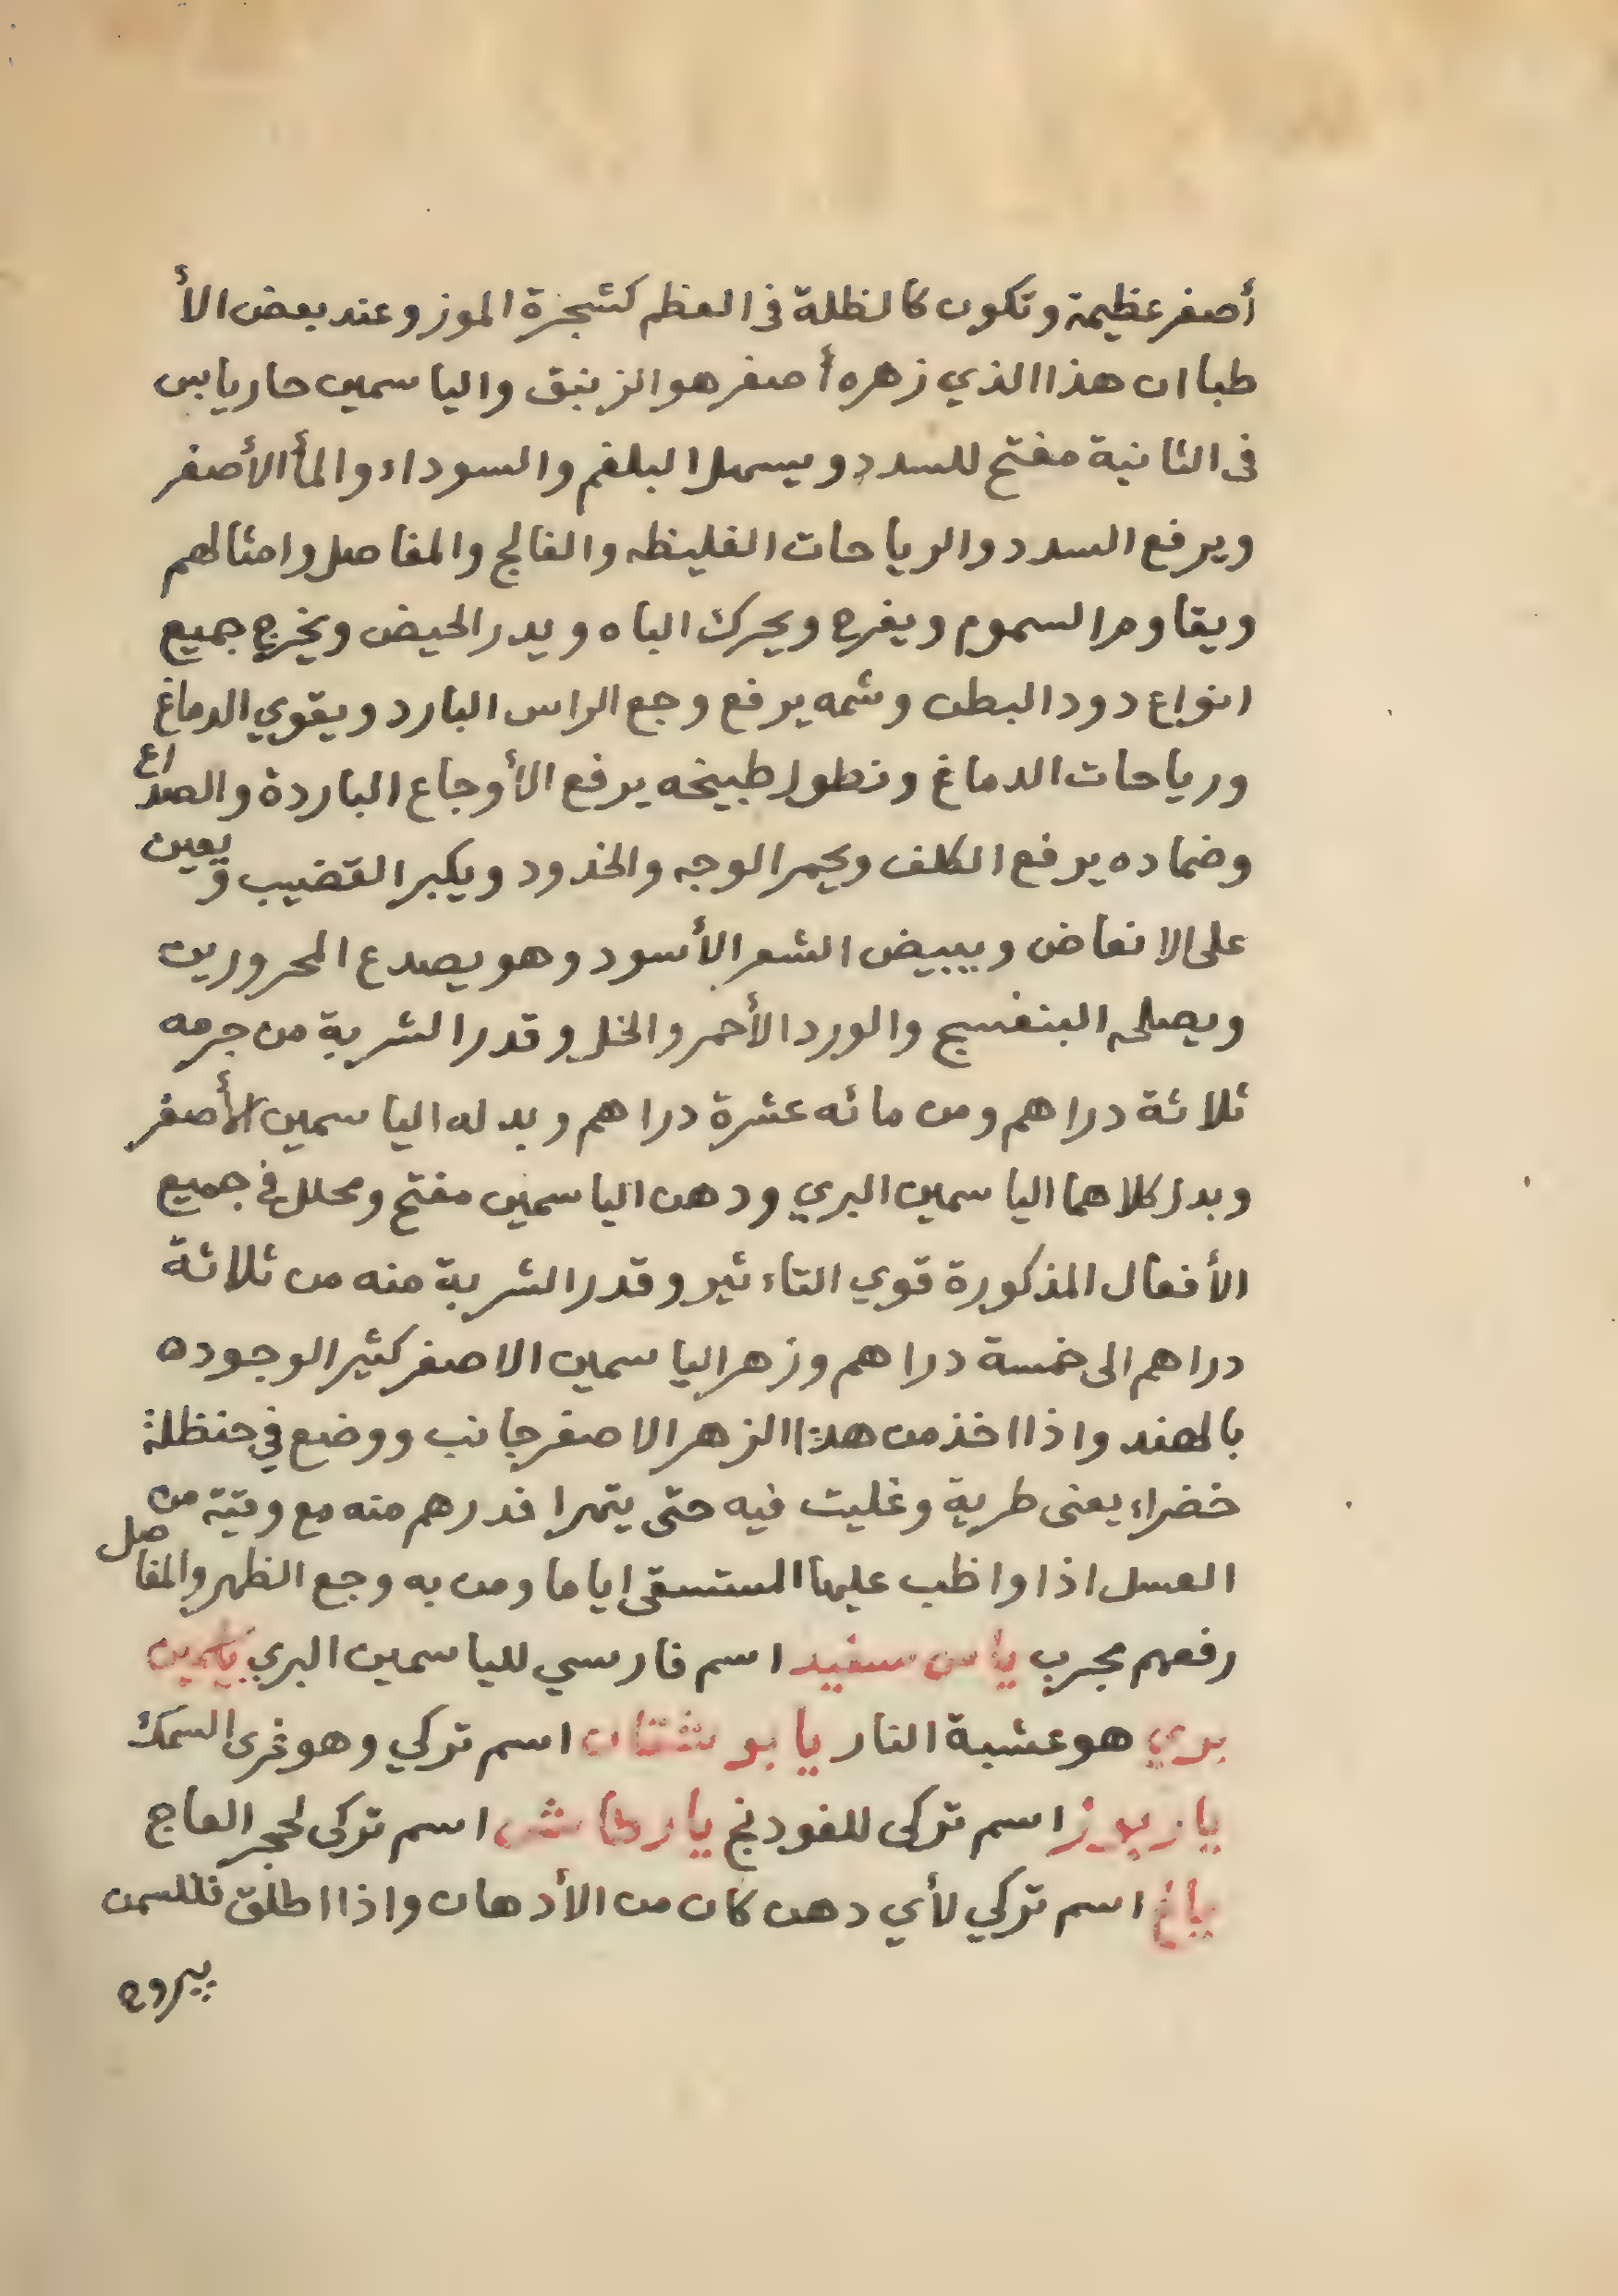 أصفر عظيمة وتكون كالظلة فى العظم كشجرة الموز وعند بعض الأ
طبا ان هذا الذي زهره أصفر هو الزنبق والياسمين حار يابس
فى الثانية مفتح للسدد ويسهل البلغم والسوداء والمأ الأصفر
ويرفع السدد والرياحات الغليظه والفالج والمفاصل وامثالهم
ويقاوم السموم ويفرح ويحرك الباه ويدر الحيض ويخرج جميع
انواع دود البطن وشمه يرفع وجع الراس البارد ويقوي الدماغ
ورياحات الدماغ ونطول طبيخه يرفع الأوجاع الباردة والصداع
وضماده يرفع الكلف ويحمر الوجه والخدود ويكبر القضيب ويعين
على الانعاض ويبيض الشعر الأسود وهو يصدع المحرورين
ويصلحه البنفسج والورد الأحمر والخل وقدر الشربة من جرمه
ثلاثة دراهم ومن مائه عشرة دراهم وبدله الياسمين الأصفر
وبدل كلاهما الياسمين البري ودهن الياسمين مفتح ومحلل في جميع
الأفعال المذكورة قوي التاءثير وقدر الشربة منه من ثلاثة
دراهم الى خمسة دراهم وزهر الياسمين الاصفر كثير الوجوده
بالهند واذا اخذ من هذا الزهر الاصفر جانب ووضع في حنظلة
خضراء يعنى طرية وغليت فيه حتى يتهرا فدرهم منه مع وقتية من
العسل اذا واظب عليها المستسقى اياما ومن به وجع الظهر والمفاصل
رفعهم مجرب ياس سفيد اسم فارسي للياسمين البري ياسمين
بري هو عشبة النار يابوشتان اسم تركي وهو غرى السمك
ياربوز اسم تركى للفودنج يارطاش اسم تركى لحجر العاج
ياغ اسم تركي لأي دهن كان من الأدهان واذا اطلق فللسمن